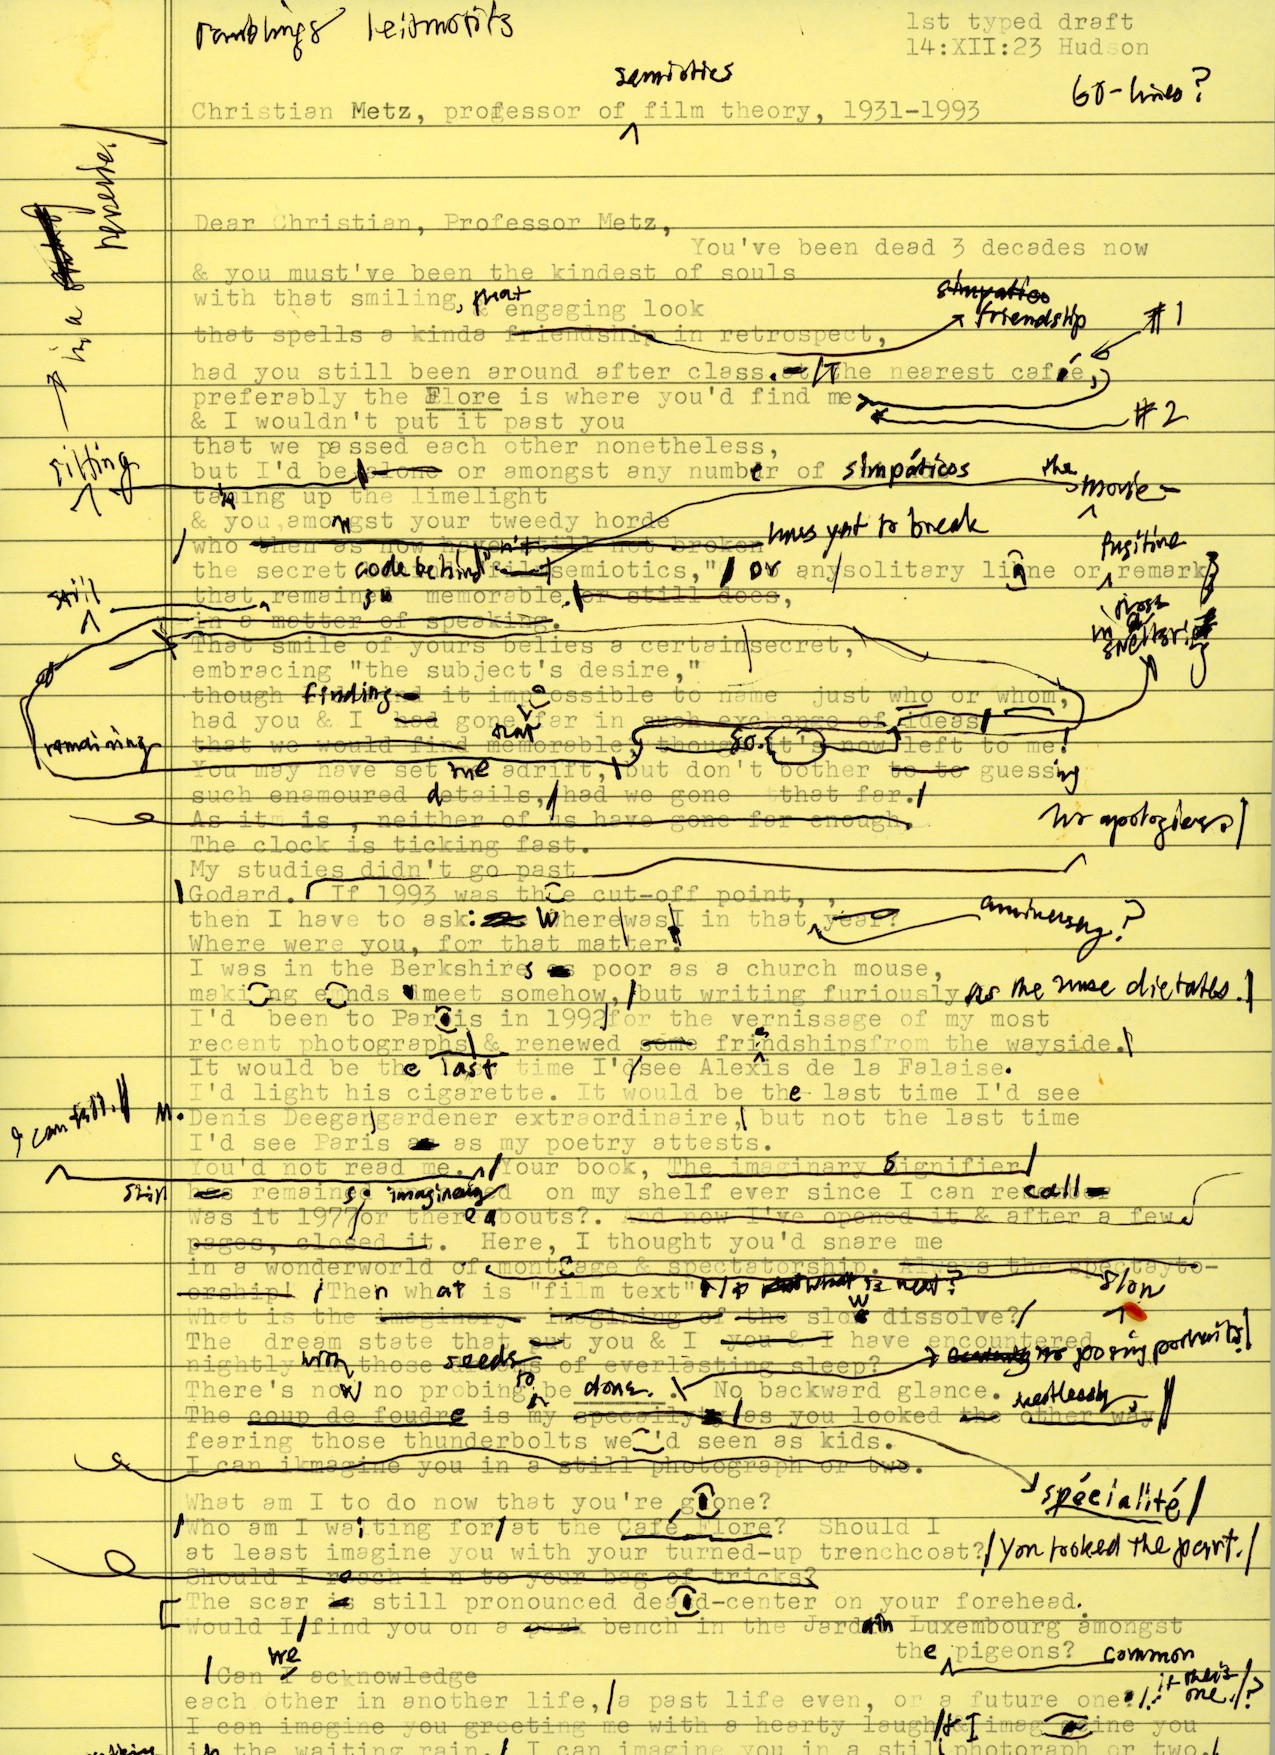 ramblings leitmotifs
1st typed draft
14:XII:23 Hudson
semiotics
60-lines?
Christian Metz, professor of film theory, 1931-1993
in a
reverie.
Dear Christian, Professor Metz,
You've been dead 3 decades now
& you must've been the kindest of souls
with that smiling, that engaging look
simpatico
friendship
#1
that spells a kinda friendship in retrospect,
had you still been around after class. at the nearest café,
preferably the Flore is where you'd find me
#2
& I wouldn't put it past you
that we passed each other nonetheless,
sitting
but I'd be alone or amongst any number of simpáticos
the movie-
taking up the limelight
& you amongst your tweedy horde
who then as now haven't still not broken has yet to break
fugitive
the secret code behind film semiotics," or any solitary line or remark
still
that remains memorable. or still does,
in a matter of speaking.
That smile of yours belies a certain secret,
embracing "the subject's desire,"
though finding it impossible to name just who or whom,
had you & I had gone that far in such exchange of ideas
remaining
that we would find memorable, though it's now left to me!
You may have set me adrift, but don't bother to to guessing
such enamoured details, had we gone that far.
As it is, neither of us have gone far enough,
No apologies.
The clock is ticking fast.
My studies didn't go past
Godard. If 1993 was the cut-off point,
then I have to ask: Where was I in that year?
anniversary?
Where were you, for that matter.
I was in the Berkshires as poor as a church mouse,
making ends meet somehow, but writing furiously as the muse dictates.
I'd been to Paris in 1992 for the vernissage of my most
recent photographs & renewed some friendships from the wayside.
It would be the last time I'd see Alexis de la Falaise.
I'd light his cigarette. It would be the last time I'd see
I can tell.
M. Denis Deegan, gardener extraordinaire, but not the last time
I'd see Paris as as my poetry attests.
You'd not read me. Your book, The imaginary Signifier
still
has remained on my shelf ever since I can recall
Was it 1977 or thereabouts?. And now I've opened it & after a few
pages, closed it. Here, I thought you'd snare me
in a wonderworld of montage & spectatorship. Always the spectato-
orship! Then what is "film text" what is next?
slow
What is the imaginary imagining of the slow dissolve?
The dream state that put you & I you & I have encountered
nightly with those seeds of everlasting sleep?
no posing portraits!
There's now no probing to be done. No backward glance.
restlessly
The coup de foudre is my specialty as you looked the other way
fearing those thunderbolts we'd seen as kids.
I can ikmagine you in a still photograph or two.
spécialité
What am I to do now that you're gone?
Who am I waiting for at the Café Flore? Should I
at least imagine you with your turned-up trenchcoat? You looked the part.
Should I reach i n to your bag of tricks?
The scar is still pronounced dead-center on your forehead.
Would I find you on a park bench in the Jardain Luxembourg amongst
the pigeons?
common
we
Can I acknowledge
each other in another life, a past life even, or a future one. if there's one.?
I can imagine you greeting me with a hearty laugh & I imagine you
in the waiting rain. I can imagine you in a still photograph or two.